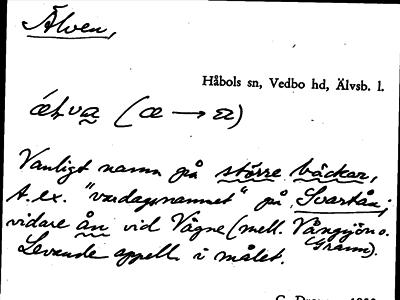 Älven,
Håbols sn, Vedbo hd, Älvsb. l.
Vanligt namn på större bäckar,
t. ex. "vardagsnamnet" på Svartån;
vidare ån vid Vågne (mell. Vångsjön o.
Grann).
Levande appell. i målet.